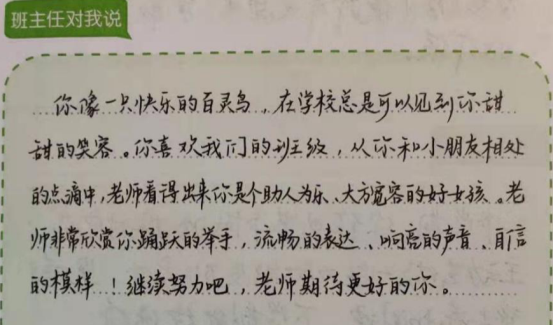 班主任对我说
你像一只快乐的百灵鸟，在学校总是可以见到你甜
甜的笑容。你喜欢我们的班级，从你和小朋友相处
的点滴中，老师看得出来你是个助人为乐、大方宽容的好女孩。老
师非常欣赏你踊跃的举手，流畅的表达、响亮的声音、自信
的模样！继续努力吧，老师期待更好的你。